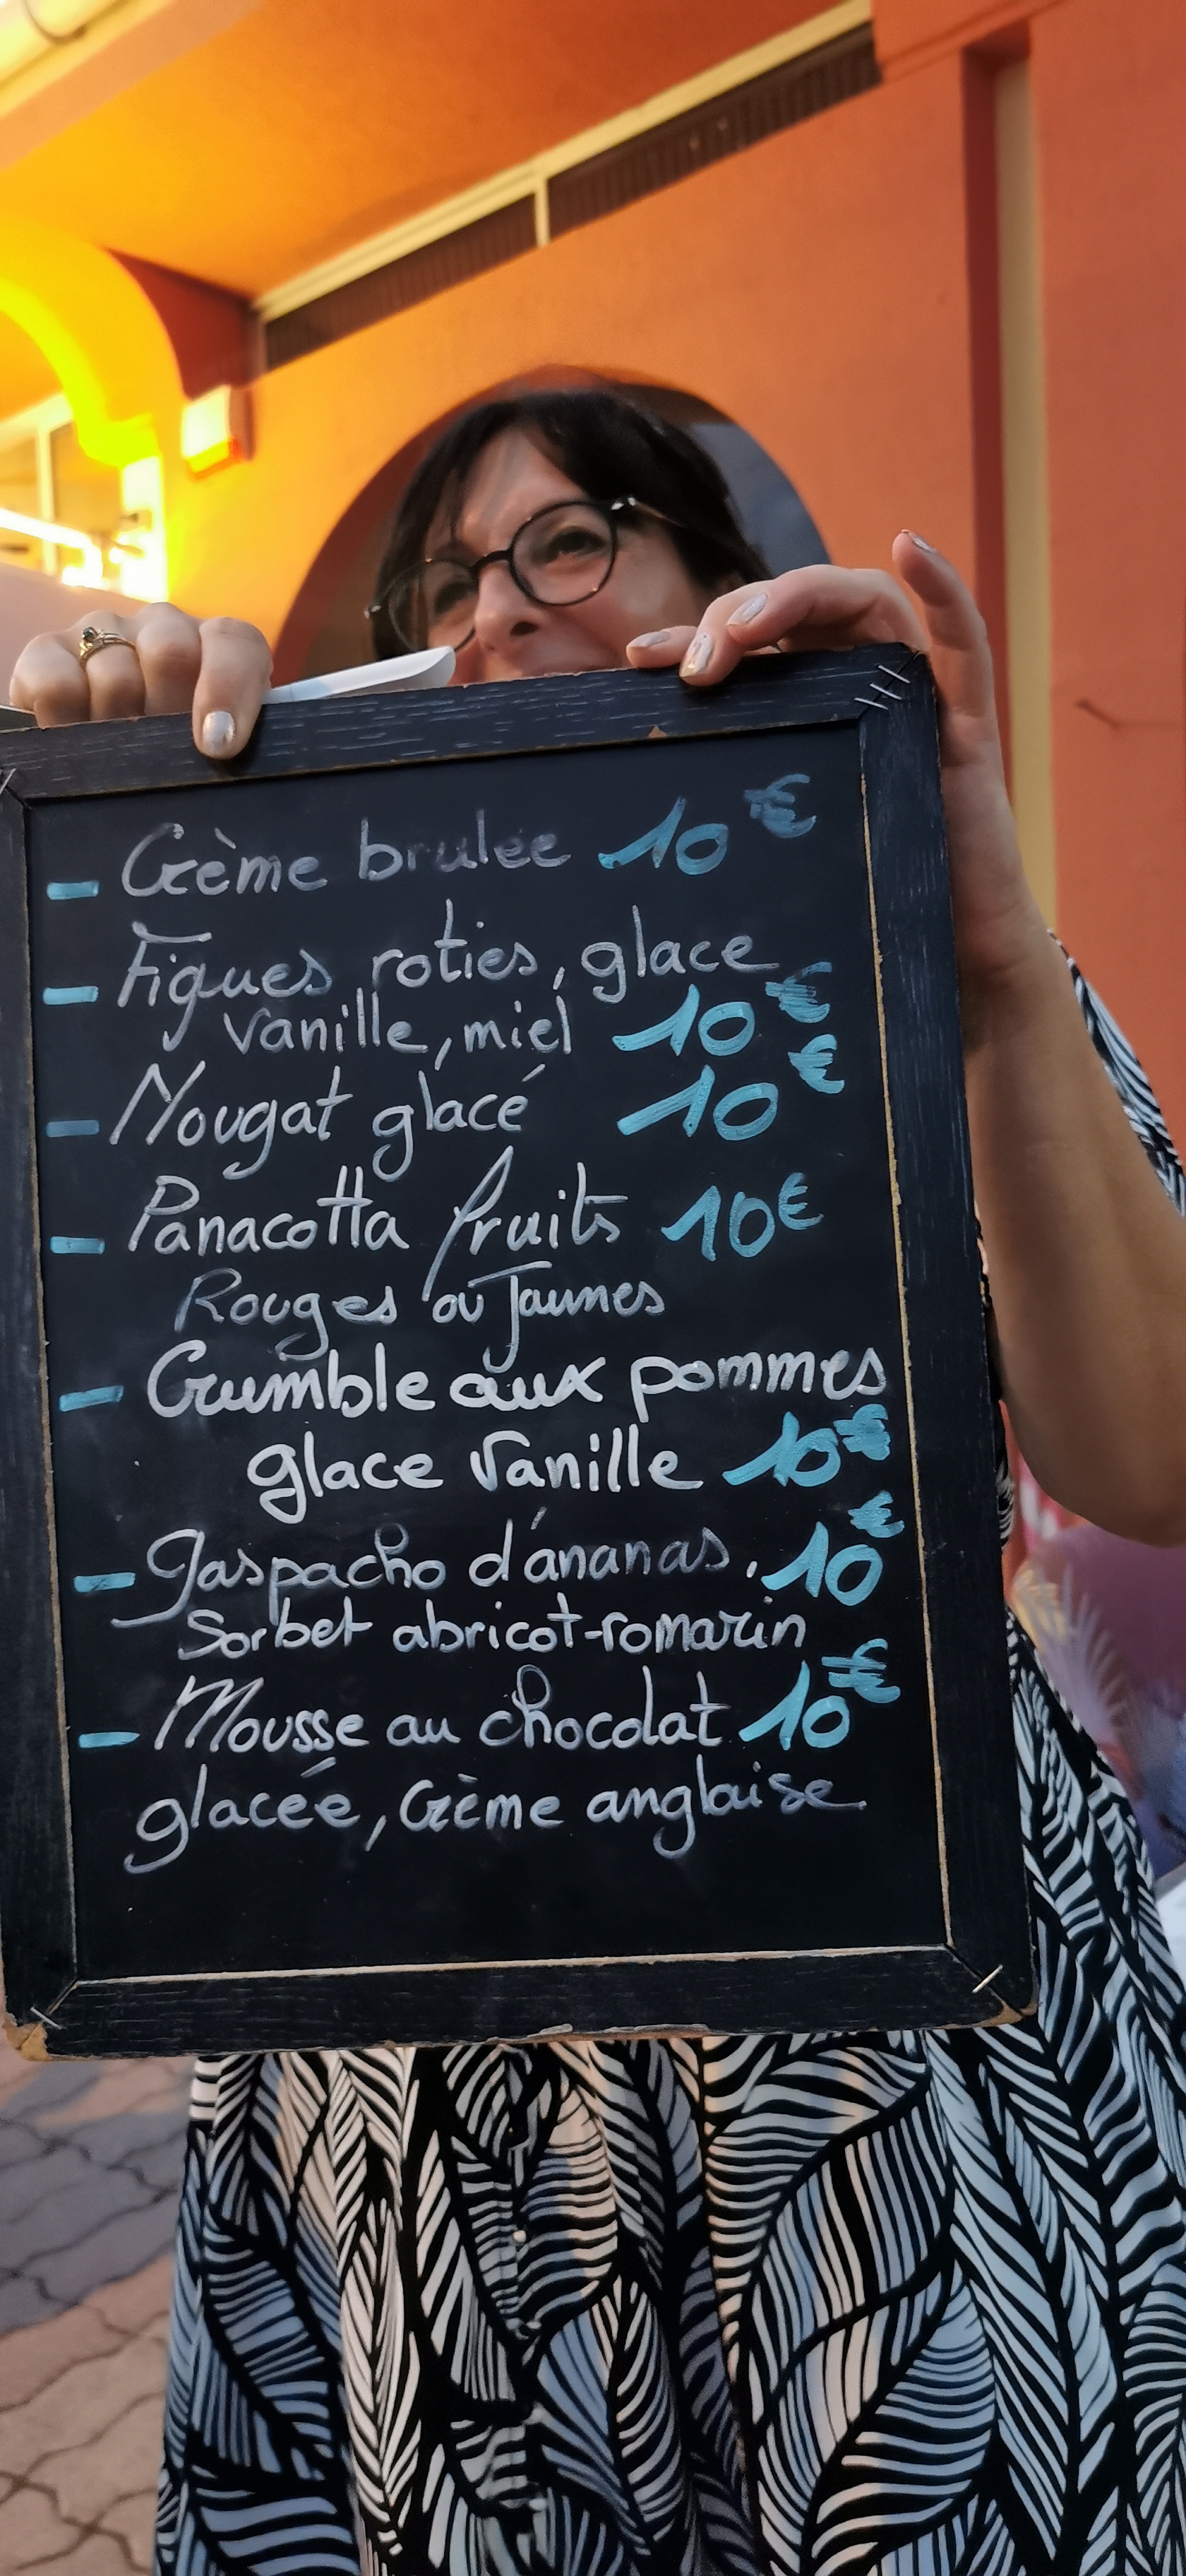 - Crème brulée 10€
- Figues roties, glace
vanille, miel 10€
- Nougat glacé 10€
- Panacotta fruits 10€
Rouges ou Jaunes
- Crumble aux pommes
glace vanille 10€
- Gaspacho d'ánanas. 10€
Sorbet abricot-romarin
- Mousse au chocolat 10€
glacée, Crème anglaise